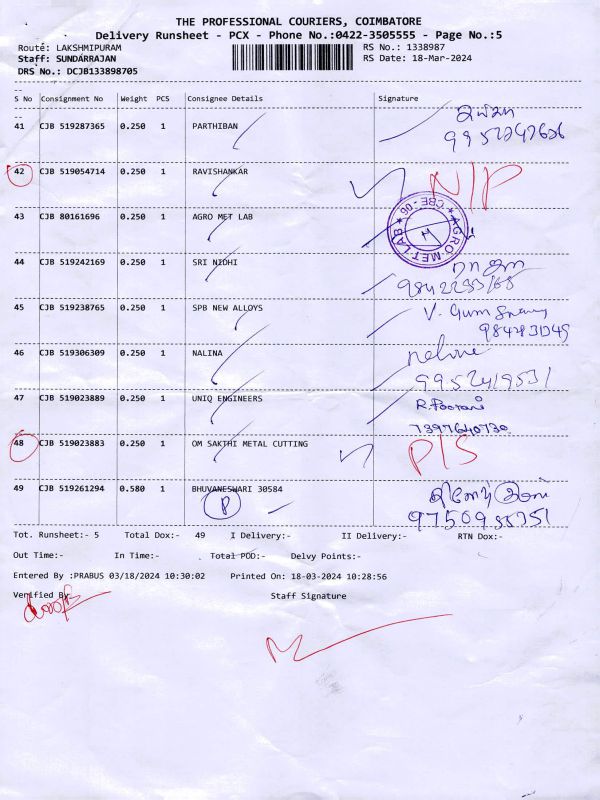 THE PROFESSIONAL COURIERS, COIMBATORE
Delivery Runsheet - PCX - Phone No.:0422-3505555 - Page No.:5
Route: LAKSHMIPURAM RS No.: 1338987
Staff: SUNDARRAJAN RS Date: 18-Mar-2024
DRS No.: DCJB133898705
S No Consignment No Weight PCS Consignee Details Signature
41 CJB 519287365 0.250 1 PARTHIBAN
42 CJB 519054714 0.250 1 RAVISHANKAR N/P
43 CJB 80161696 0.250 1 AGRO MET LAB
AGRO MET LAB * CBE - 06 *
44 CJB 519242169 0.250 1 SRI NIDHI
45 CJB 519238765 0.250 1 SPB NEW ALLOYS
46 CJB 519306309 0.250 1 NALINA
9952419531
47 CJB 519023889 0.250 1 UNIQ ENGINEERS R.Poorani
7397640730
48 CJB 519023883 0.250 1 OM SAKTHI METAL CUTTING P/S
49 CJB 519261294 0.580 1 BHUVANESWARI 30584
P
Tot. Runsheet:- 5 Total Dox:- 49 I Delivery:- II Delivery:- RTN Dox:-
Out Time:- In Time:- Total POD:- Delvy Points:-
Entered By :PRABUS 03/18/2024 10:30:02 Printed On: 18-03-2024 10:28:56
Verified By Staff Signature